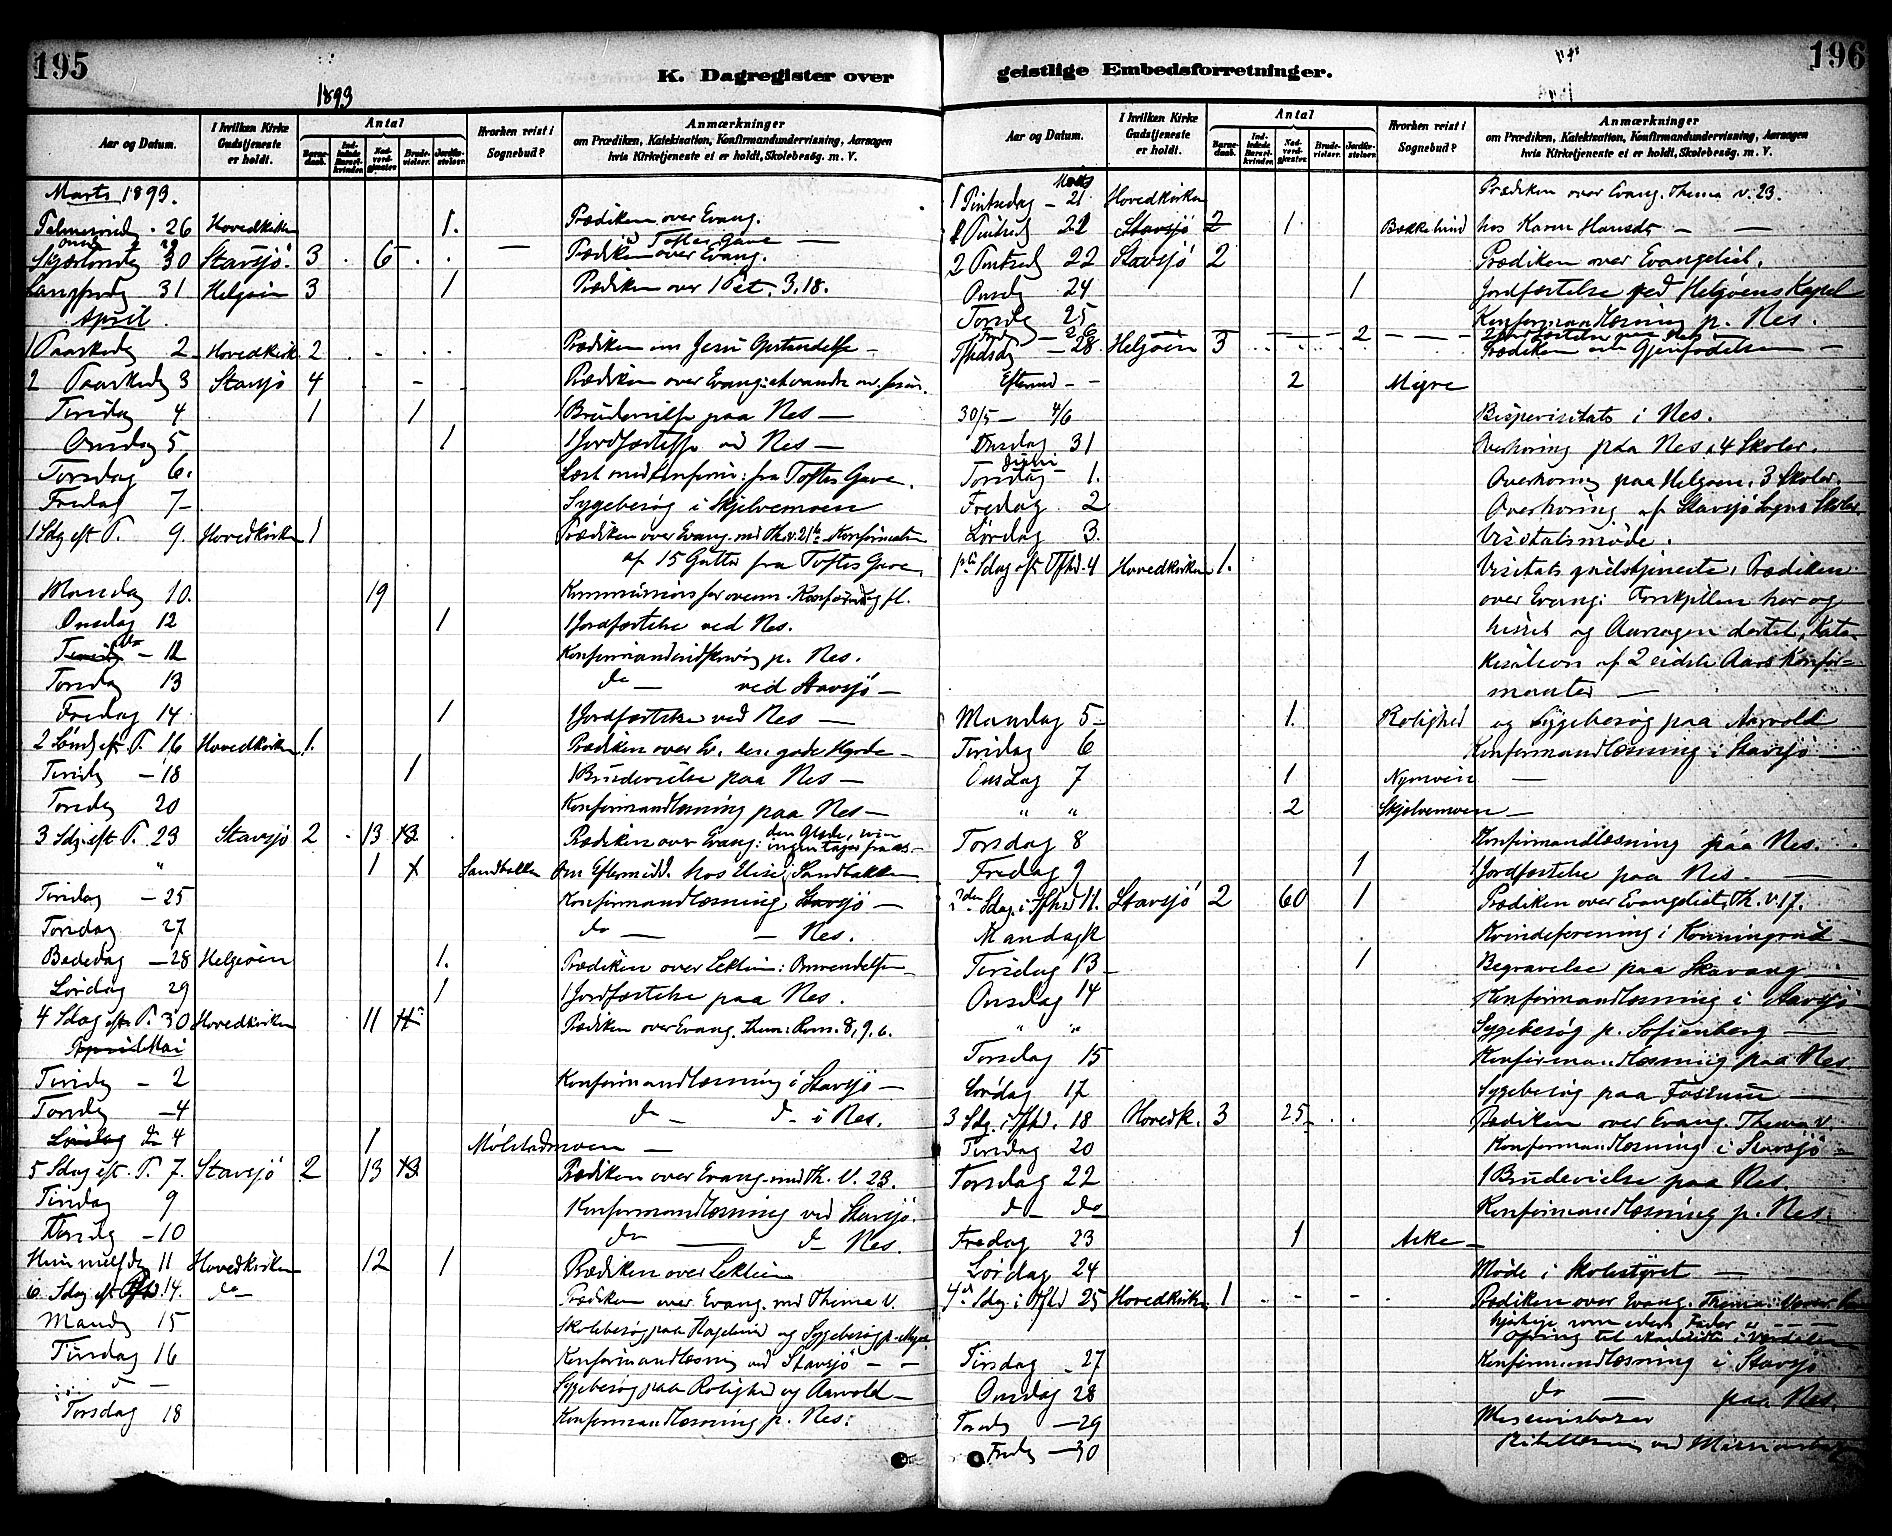 195
K. Dagregister over
1893
Aar og Datum. I hvilken Kirke Gudstjeneste er holdt. Antal Barnedaab. Indledede Barselkvinder Nadverdgjæster Brudevielser. Jordfæstelser. Hvorhen reist i Sognebud? Anmærkninger
om Prædiken, Katekisation, Konfirmandundervisning, Aarsagen
hvis Kirketjeneste ei er holdt, Skolebesøg. m. V.
Marts 1893.
Palmesønd. 26 Hovedkirken 1. Prædiken over Evang.
Skjærtorsdag 30 Stavsjö. 3 . 6 . . Prædiken over Evang.
Langfredg 31 Helgøen 3 1 Prædiken over 1 Pet. 3.18.
April
1 Paaskedg 2 Hovedkirk. 2 Prædiken om Jesu Opstandelse
2 Paaskedg 3 Stavsjö 4 Prædiken over Evang:
Tirsdag 4 1 1 1 Brudevielse paa Nes
Onsdag 5 1 1 Jordfæstelse ved Nes
Torsdag 6. Læst med Konfirm: fra Toftes Gave.
Fredag 7 Sygebesøg i Skjelvemoen
1 Sdg eft P. 9. Hovedkirken 1 Prædiken over Evang. md Th. v. 21 Konfirmation
af 15 Gutter fra Toftes Gave.
Mandag 10. 19
Onsdag 12 1 1 Jordfæstelse ved Nes.
12 Konfirmandindskrivng p. Nes.
Torsdag 13 do — ved Stavsjö
Fredag 14 1 1 Jordfæstelse ved Nes
2 Sønd. eft P. 16 Hovedkirken 1. Prædiken over Ev. den gode Hyrde
Tirsdg 18 1 1 Brudevielse paa Nes
Torsdg 20 Konfirmandlæsning paa Nes
3 Sdg. eft P. 23 Stavsjö 2 . 13 Prædiken over Evang: den Glæde, som ingen tager fra os
" 1 Sandbakken Om Eftermidd. hos Elise Sandbakken
Tirsdag 25 Konfirmandlæsning Stavsjö
Torsdag 27 do — Nes.
Bededag 28 Helgøen 1. Prædiken over Lektien: Omvendelsen
Lördag 29 1 1 Jordfæstelse paa Nes.
4 Sdag eft P. 30 Hovedkirken 11 Prædiken over Evang. Them: Rom. 8, 9, 6.
Mai
Tirsdg 2 Konfirmandlæsning i Stavsjö
Torsdg 4 do — do i Nes.
4 1 Mølstadmoen
5 Sdag eft. P. 7. Stavsjö 2 13 Prædiken over Evang. md Th. V. 23.
Tirsdag 9 Konfirmandlæsning ved Stavsjö.
10 do — do Nes.
Himmelf.dg 11 Hovedkirken 12 1 Prædiken over Lektien
6 Sdag eft 14. do Prædiken over Evang. md Thema V.
Mandg 15 Skolebesøg paa og Sygebesøg p.
Tirsdag 16 Konfirmandlæsning ved Stavsjö
do Sygebesøg paa Rolighed og Aarvold
Torsdag 18 Konfirmandlæsning p. Nes.
196
geistlige Embedsforretninger.
Aar og Datum. I hvilken Kirke Gudstjeneste er holdt. Antal Barnedaab. Indledede Barselkvinder Nadverdgjæster Brudevielser. Jordfæstelser. Hvorhen reist i Sognebud? Anmærkninger
om Prædiken, Katekisation, Konfirmandundervisning, Aarsagen
hvis Kirketjeneste ei er holdt, Skolebesøg. m. V.
1 Pintsedag 21 Hovedkirken Prædiken over Evang. Thema v. 23.
Pintsed. Stavsjö 1 hos Karen
2 Pintsed. 22 Stavsjö 2 Prædiken over Evangeliet.
Onsdg 24 1 Jordfæstelse ved Helgøens Kapel
Torsdg 25 Konfirmandlæsning p. Nes.
Fredg 26 2
28. Helgøen 3 Prædiken om Gjenfødelsen
Efterm. 2 Migre
30/5 — 4/6 Bispevisitats i Nes.
Onsdag 31 Overhøring paa Nes, 4 Skoler.
Juni
Torsdag 1. Overhøring paa Helgøen, 3 Skoler.
Fredag 2 Overhøring af Stavsjö Sogns Skoler
Lørdag 3. Visitatsmøde.
1ste Sdag eft 4 Hovedkirken 1. Visitatsgudstjeneste, Prædiken
over Evang: Forskjellen her og
hisset og Aarsagen dertil, Kate-
kisation af 2 sidste Aars Konfir-
manter
Mandag 5 1. Rolighed og Sygebesøg paa Aarvold
Tirsdag 6 Konfirmandlæsning i Stavsjö
Onsdag 7 1 Nymoen
" " 2 Skjelvemoen
Torsdag 8 Konfirmandlæsning paa Nes.
Fredag 9 1 1 Jordfæstelse paa Nes.
2den Sdag. i 11. Stavsjö 2 60 1 Prædiken over Evangeliet, Th. v. 17.
Mandag 12 Kvindeforening i
Tirsdag 13 1 Begravelse paa Skavang
Onsdag 14 Konfirmandlæsning i Stavsjö
" " Sygebesøg p. Sofienberg
Torsdag 15 Konfirmandlæsning paa Nes.
Lørdag 17 Sygebesøg paa
3 Sdg. i 18 Hovedk. 3 25 Prædiken over Evang. Thema v
Tirsdag 20 Konfirmandlæsning i Stavsjö
Torsdag 22 1 Brudevielse paa Nes.
do do Konfirmandlæsning p. Nes.
Fredag 23 1 Aske
Lørdag 24 Møde i Skolestyret
4de Sdag i 25 Hovedkirken 1 Prædiken over Evang. Thema:
som eders Fader
Tirsdag 27 Konfirmandlæsning i Stavsjö
Onsdag 28 do — paa Nes.
Torsdg 29 Missionsbazar
Fredg 30